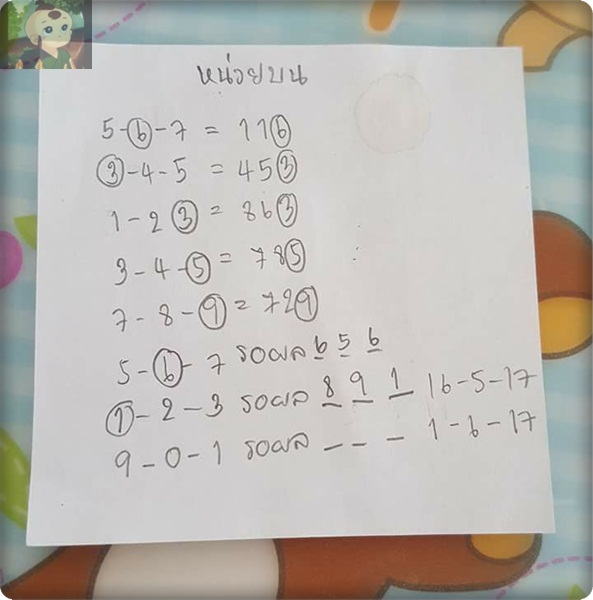 หน่วยบน
5-6-7 = 116
3-4-5 = 453
1-2 3 = 863
3-4-5 = 785
7-8-9 = 729
5-6-7 รอผล 6 5 6
1-2-3 รอผล 8 9 1 16-5-17
9-0-1 รอผล _ _ _ 1-6-17